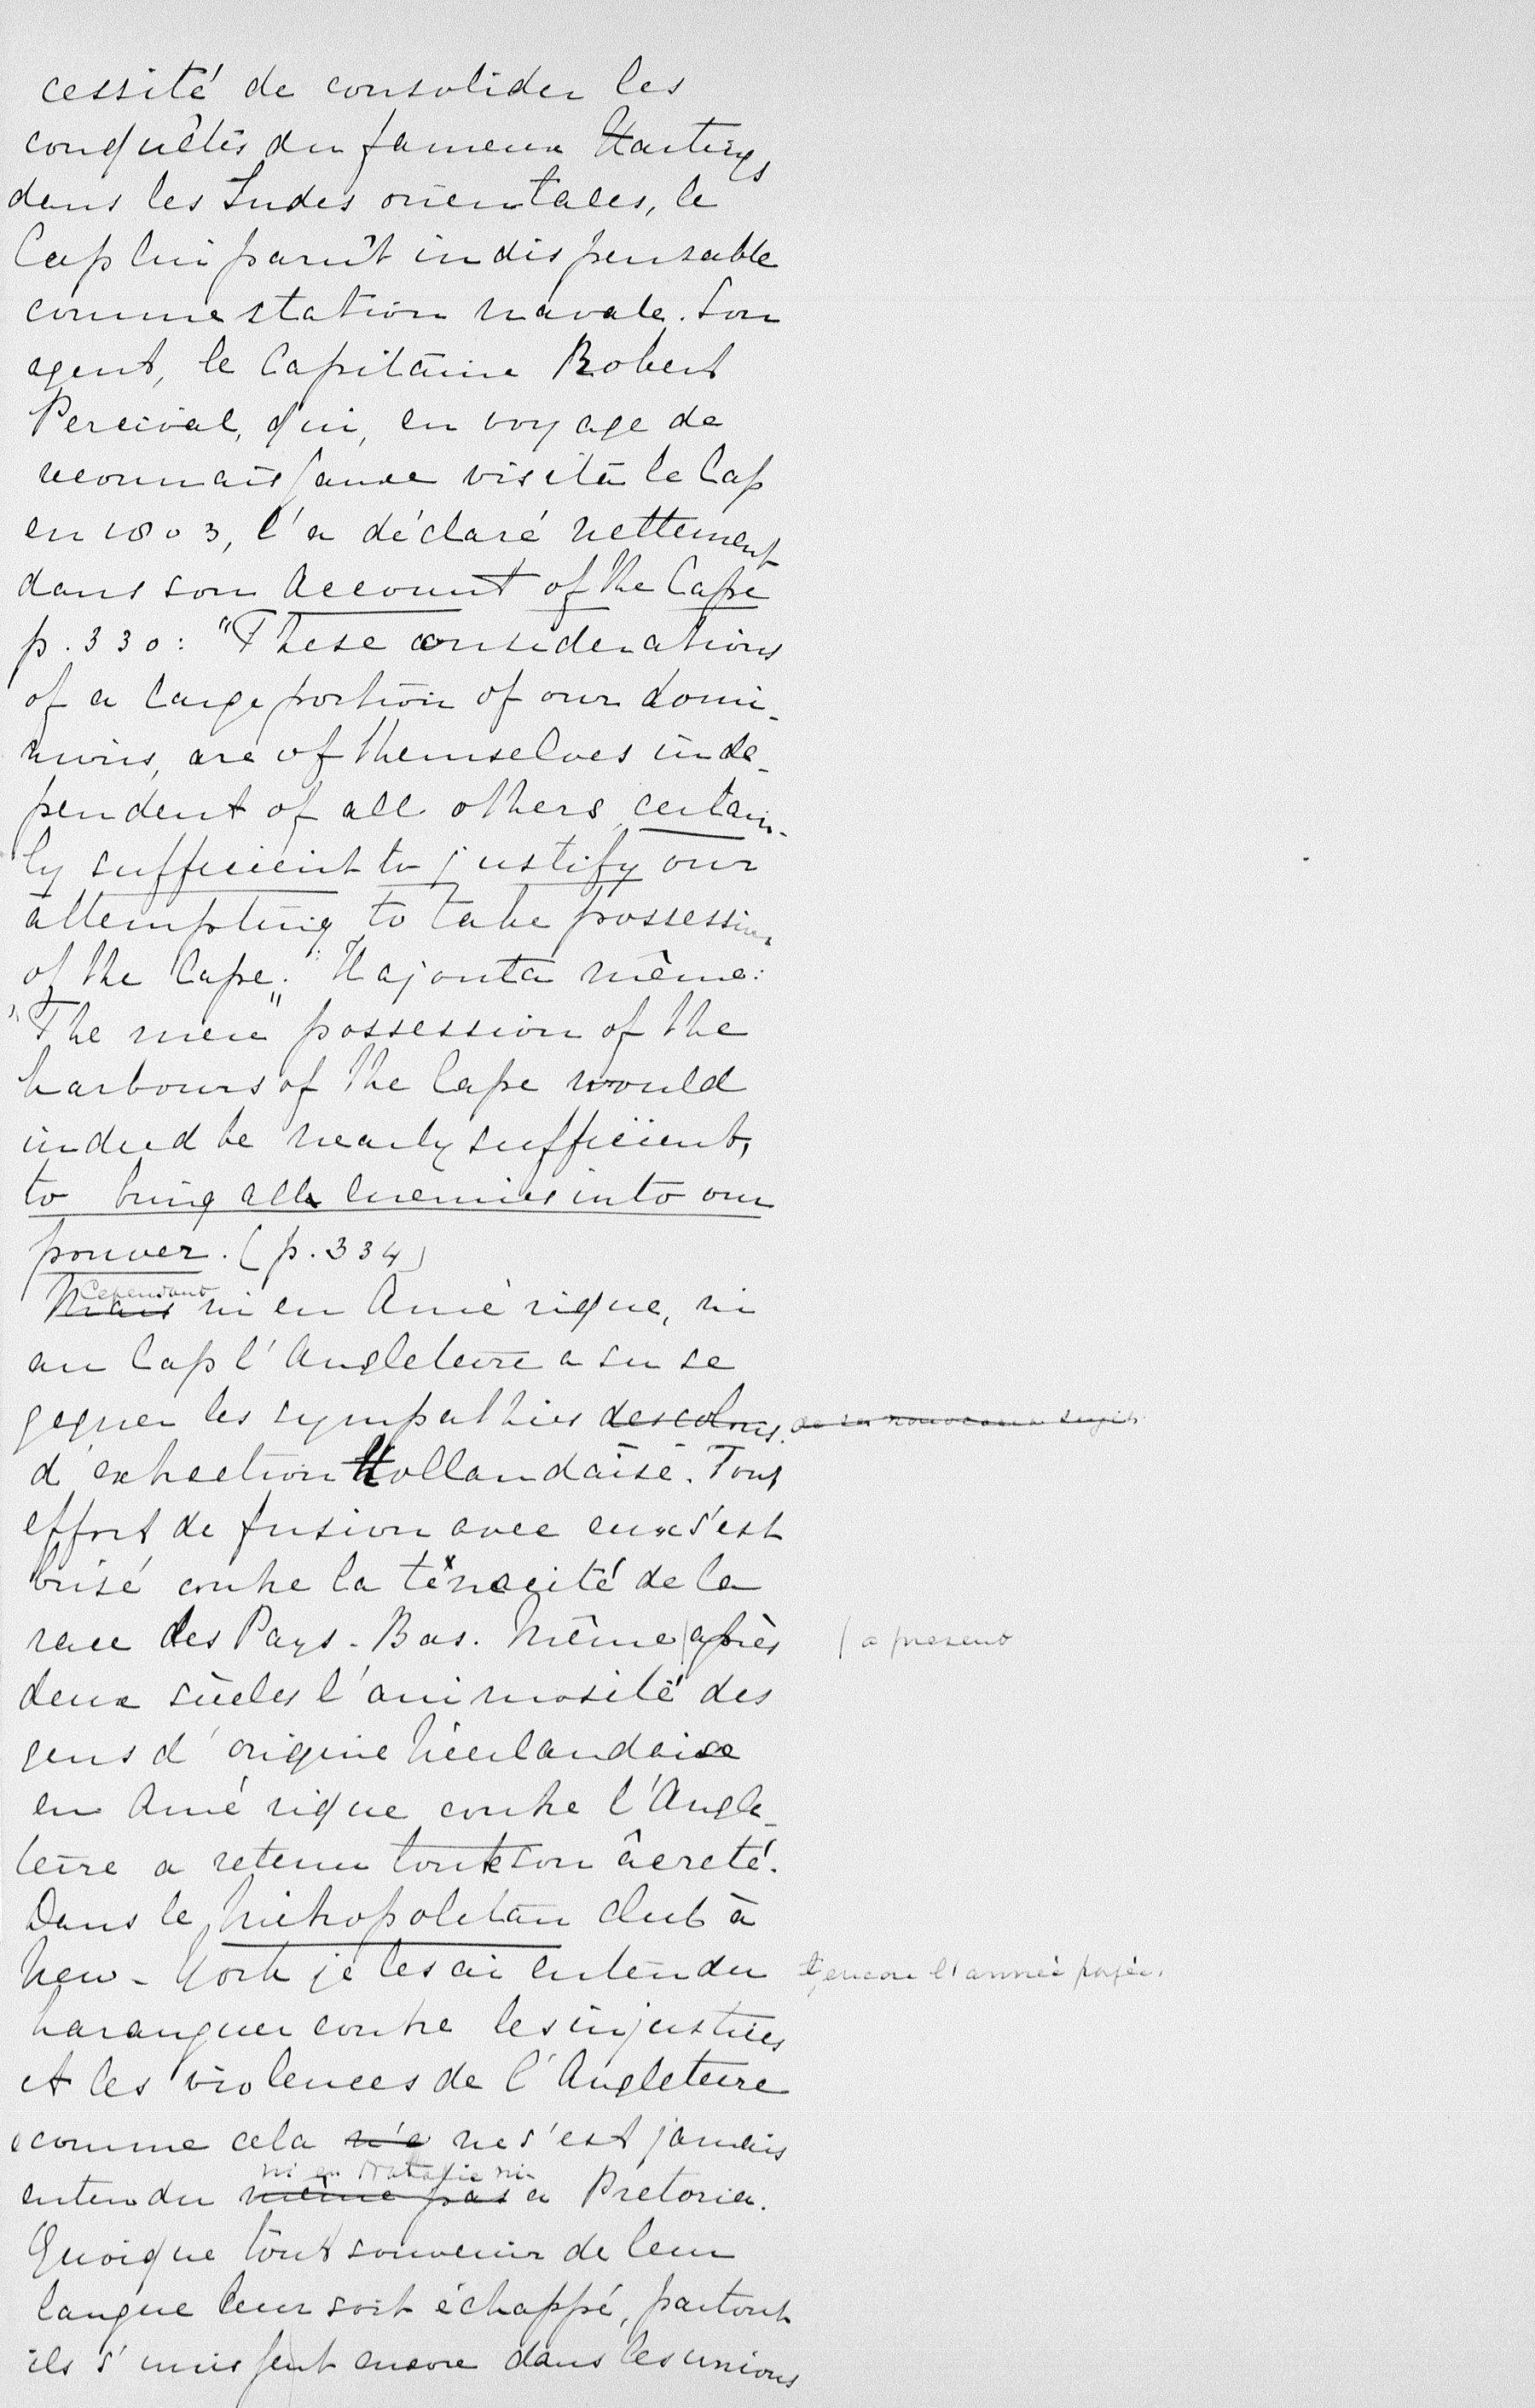 cessité de consolider les
conquêtes du fameux Hastings
dans les Indes orientales, le
Cap lui parût indispensable
comme station navale. Son
agent, le Capitaine Robert
Percival, qui, en voyage de
reconnaissance visita le Cap
en 1803, l'a déclaré nettement
dans son Account of the Cape
p. 330: "These considerations
of a large portion of our domi-
nions, are of themselves inde-
pendent of all others certain-
ly sufficient to justify our
attempting to take possession
of the Cape." Il ajouta même:
"The mere" possession of the
harbours of the Cape would
indeed be nearly sufficient,
to bring all enemies into our
pouver. (p. 334)
Cependant
Mais ni en Amérique, ni
au Cap l'Angleterre a su se
gagner les sympathies des colons. de ses nouveaux sujets
d'extraction Hollandaise. Tout
effort de fusion avec eux s'est
brisé contre la ténacité de la
race des Pays-Bas. Même après
à présent
deux siècles l'animosité des
gens d'origine Néerlandaise
en Amérique contre l'Angle-
terre a retenu toute son âcreté.
Dans le Metropolitan Club à
New-York je les ai entendu
encore l'année passée,
haranguer contre les injustices
et les violences de l'Angleterre
comme cela n'a ne s'est jamais
ni en Batavie ni
entendu même pas a Pretoria.
Quoique tout souvenir de leur
langue leur soit échappé, partout
ils s'unissent encore dans les unions